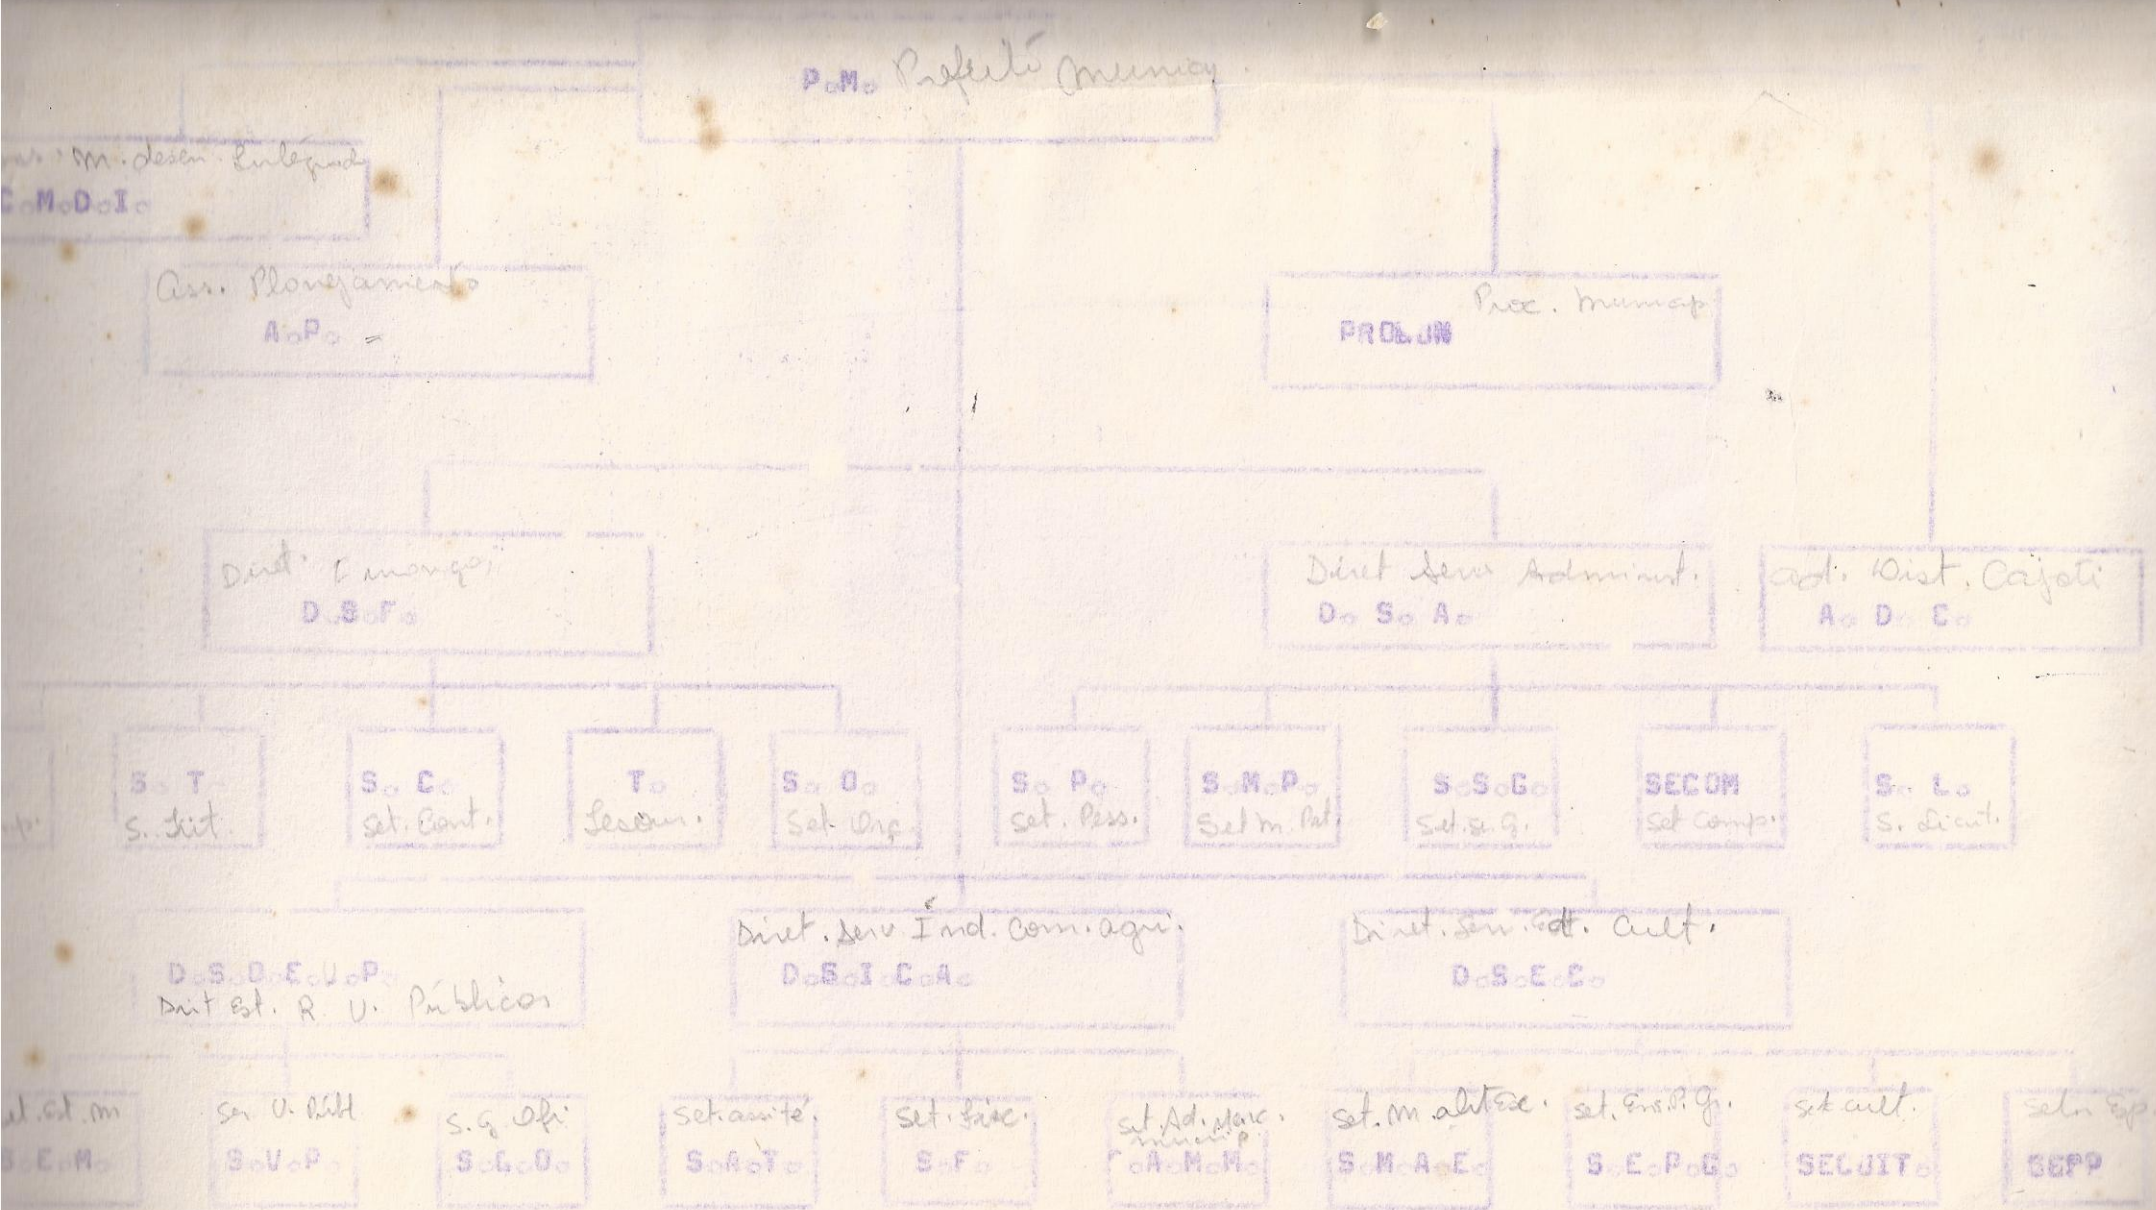 P.M. Prefeito Municip.
M. desen. Integrad
C.M.D.I.
Ass. Planejamento
A.P. =
Proc. Municip
Diret.
D.S.F.
Diret Serv Administ.
D. S. A.
ad. Dist. Cajati
A. D. C.
S. T
S. Trit.
S. C.
Set. Cont.
T.
Tesour.
S. O.
Set. Orç
S. P.
Set. Pess.
S.M.P.
Set M. Pat.
S.S.G.
Set. se. G.
SECOM
Set Comp.
S. L.
S. Licit.
D.S.D.E.U.P.
Dirt Est. R. U. Públicos
Diret. Serv. Ind. Com. agri.
D.S.I.C.A.
Diret. Serv. Cult.
D.S.E.C.
et. Est. M
S.E.M.
Ser. U. Públ
S.U.P.
S. G. Ofi
S.G.O.
Set. assité.
S.A.T.
Set. Fisc.
S.F.
Set. Ad. Merc.
municip.
.A.M.M.
Set. M. alit Esc.
S.M.A.E.
Set. Ens. P. G.
S.E.P.G.
Set cult.
SECUIT.
Setr Esp